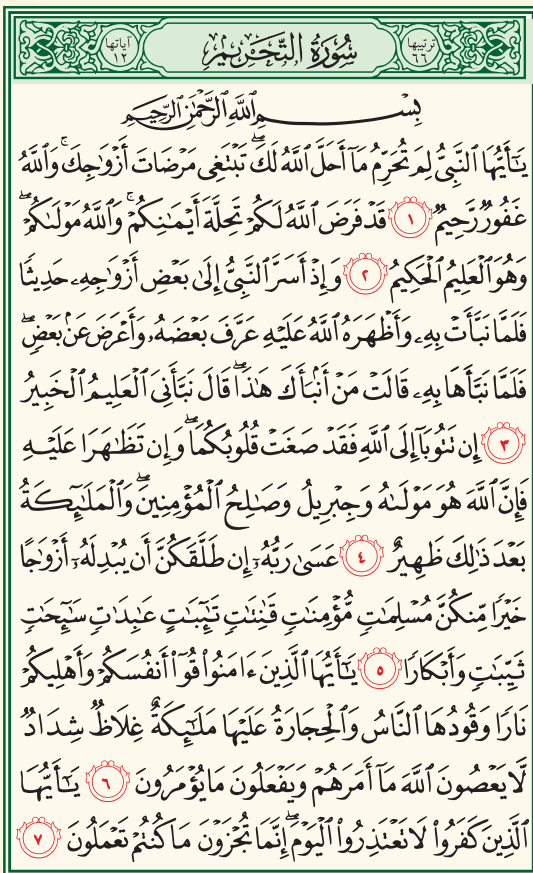 ترتيبها ٦٦ سُورَةُ التَّحْرِيمِ آياتها ١٢
بِسْمِ ٱللَّهِ ٱلرَّحْمَٰنِ ٱلرَّحِيمِ
يَٰٓأَيُّهَا ٱلنَّبِيُّ لِمَ تُحَرِّمُ مَآ أَحَلَّ ٱللَّهُ لَكَۖ تَبْتَغِى مَرْضَاتَ أَزْوَٰجِكَۚ وَٱللَّهُ
غَفُورٌ رَّحِيمٌ ١ قَدْ فَرَضَ ٱللَّهُ لَكُمْ تَحِلَّةَ أَيْمَٰنِكُمْۚ وَٱللَّهُ مَوْلَىٰكُمْۖ
وَهُوَ ٱلْعَلِيمُ ٱلْحَكِيمُ ٢ وَإِذْ أَسَرَّ ٱلنَّبِيُّ إِلَىٰ بَعْضِ أَزْوَٰجِهِۦ حَدِيثًا
فَلَمَّا نَبَّأَتْ بِهِۦ وَأَظْهَرَهُ ٱللَّهُ عَلَيْهِ عَرَّفَ بَعْضَهُۥ وَأَعْرَضَ عَنۢ بَعْضٍۖ
فَلَمَّا نَبَّأَهَا بِهِۦ قَالَتْ مَنْ أَنۢبَأَكَ هَٰذَاۖ قَالَ نَبَّأَنِىَ ٱلْعَلِيمُ ٱلْخَبِيرُ
٣ إِن تَتُوبَآ إِلَى ٱللَّهِ فَقَدْ صَغَتْ قُلُوبُكُمَاۖ وَإِن تَظَٰهَرَا عَلَيْهِ
فَإِنَّ ٱللَّهَ هُوَ مَوْلَىٰهُ وَجِبْرِيلُ وَصَٰلِحُ ٱلْمُؤْمِنِينَۖ وَٱلْمَلَٰٓئِكَةُ
بَعْدَ ذَٰلِكَ ظَهِيرٌ ٤ عَسَىٰ رَبُّهُۥٓ إِن طَلَّقَكُنَّ أَن يُبْدِلَهُۥٓ أَزْوَٰجًا
خَيْرًا مِّنكُنَّ مُسْلِمَٰتٍ مُّؤْمِنَٰتٍ قَٰنِتَٰتٍ تَٰٓئِبَٰتٍ عَٰبِدَٰتٍ سَٰٓئِحَٰتٍ
ثَيِّبَٰتٍ وَأَبْكَارًا ٥ يَٰٓأَيُّهَا ٱلَّذِينَ ءَامَنُوا۟ قُوٓا۟ أَنفُسَكُمْ وَأَهْلِيكُمْ
نَارًا وَقُودُهَا ٱلنَّاسُ وَٱلْحِجَارَةُ عَلَيْهَا مَلَٰٓئِكَةٌ غِلَاظٌ شِدَادٌ
لَّا يَعْصُونَ ٱللَّهَ مَآ أَمَرَهُمْ وَيَفْعَلُونَ مَا يُؤْمَرُونَ ٦ يَٰٓأَيُّهَا
ٱلَّذِينَ كَفَرُوا۟ لَا تَعْتَذِرُوا۟ ٱلْيَوْمَۖ إِنَّمَا تُجْزَوْنَ مَا كُنتُمْ تَعْمَلُونَ ٧